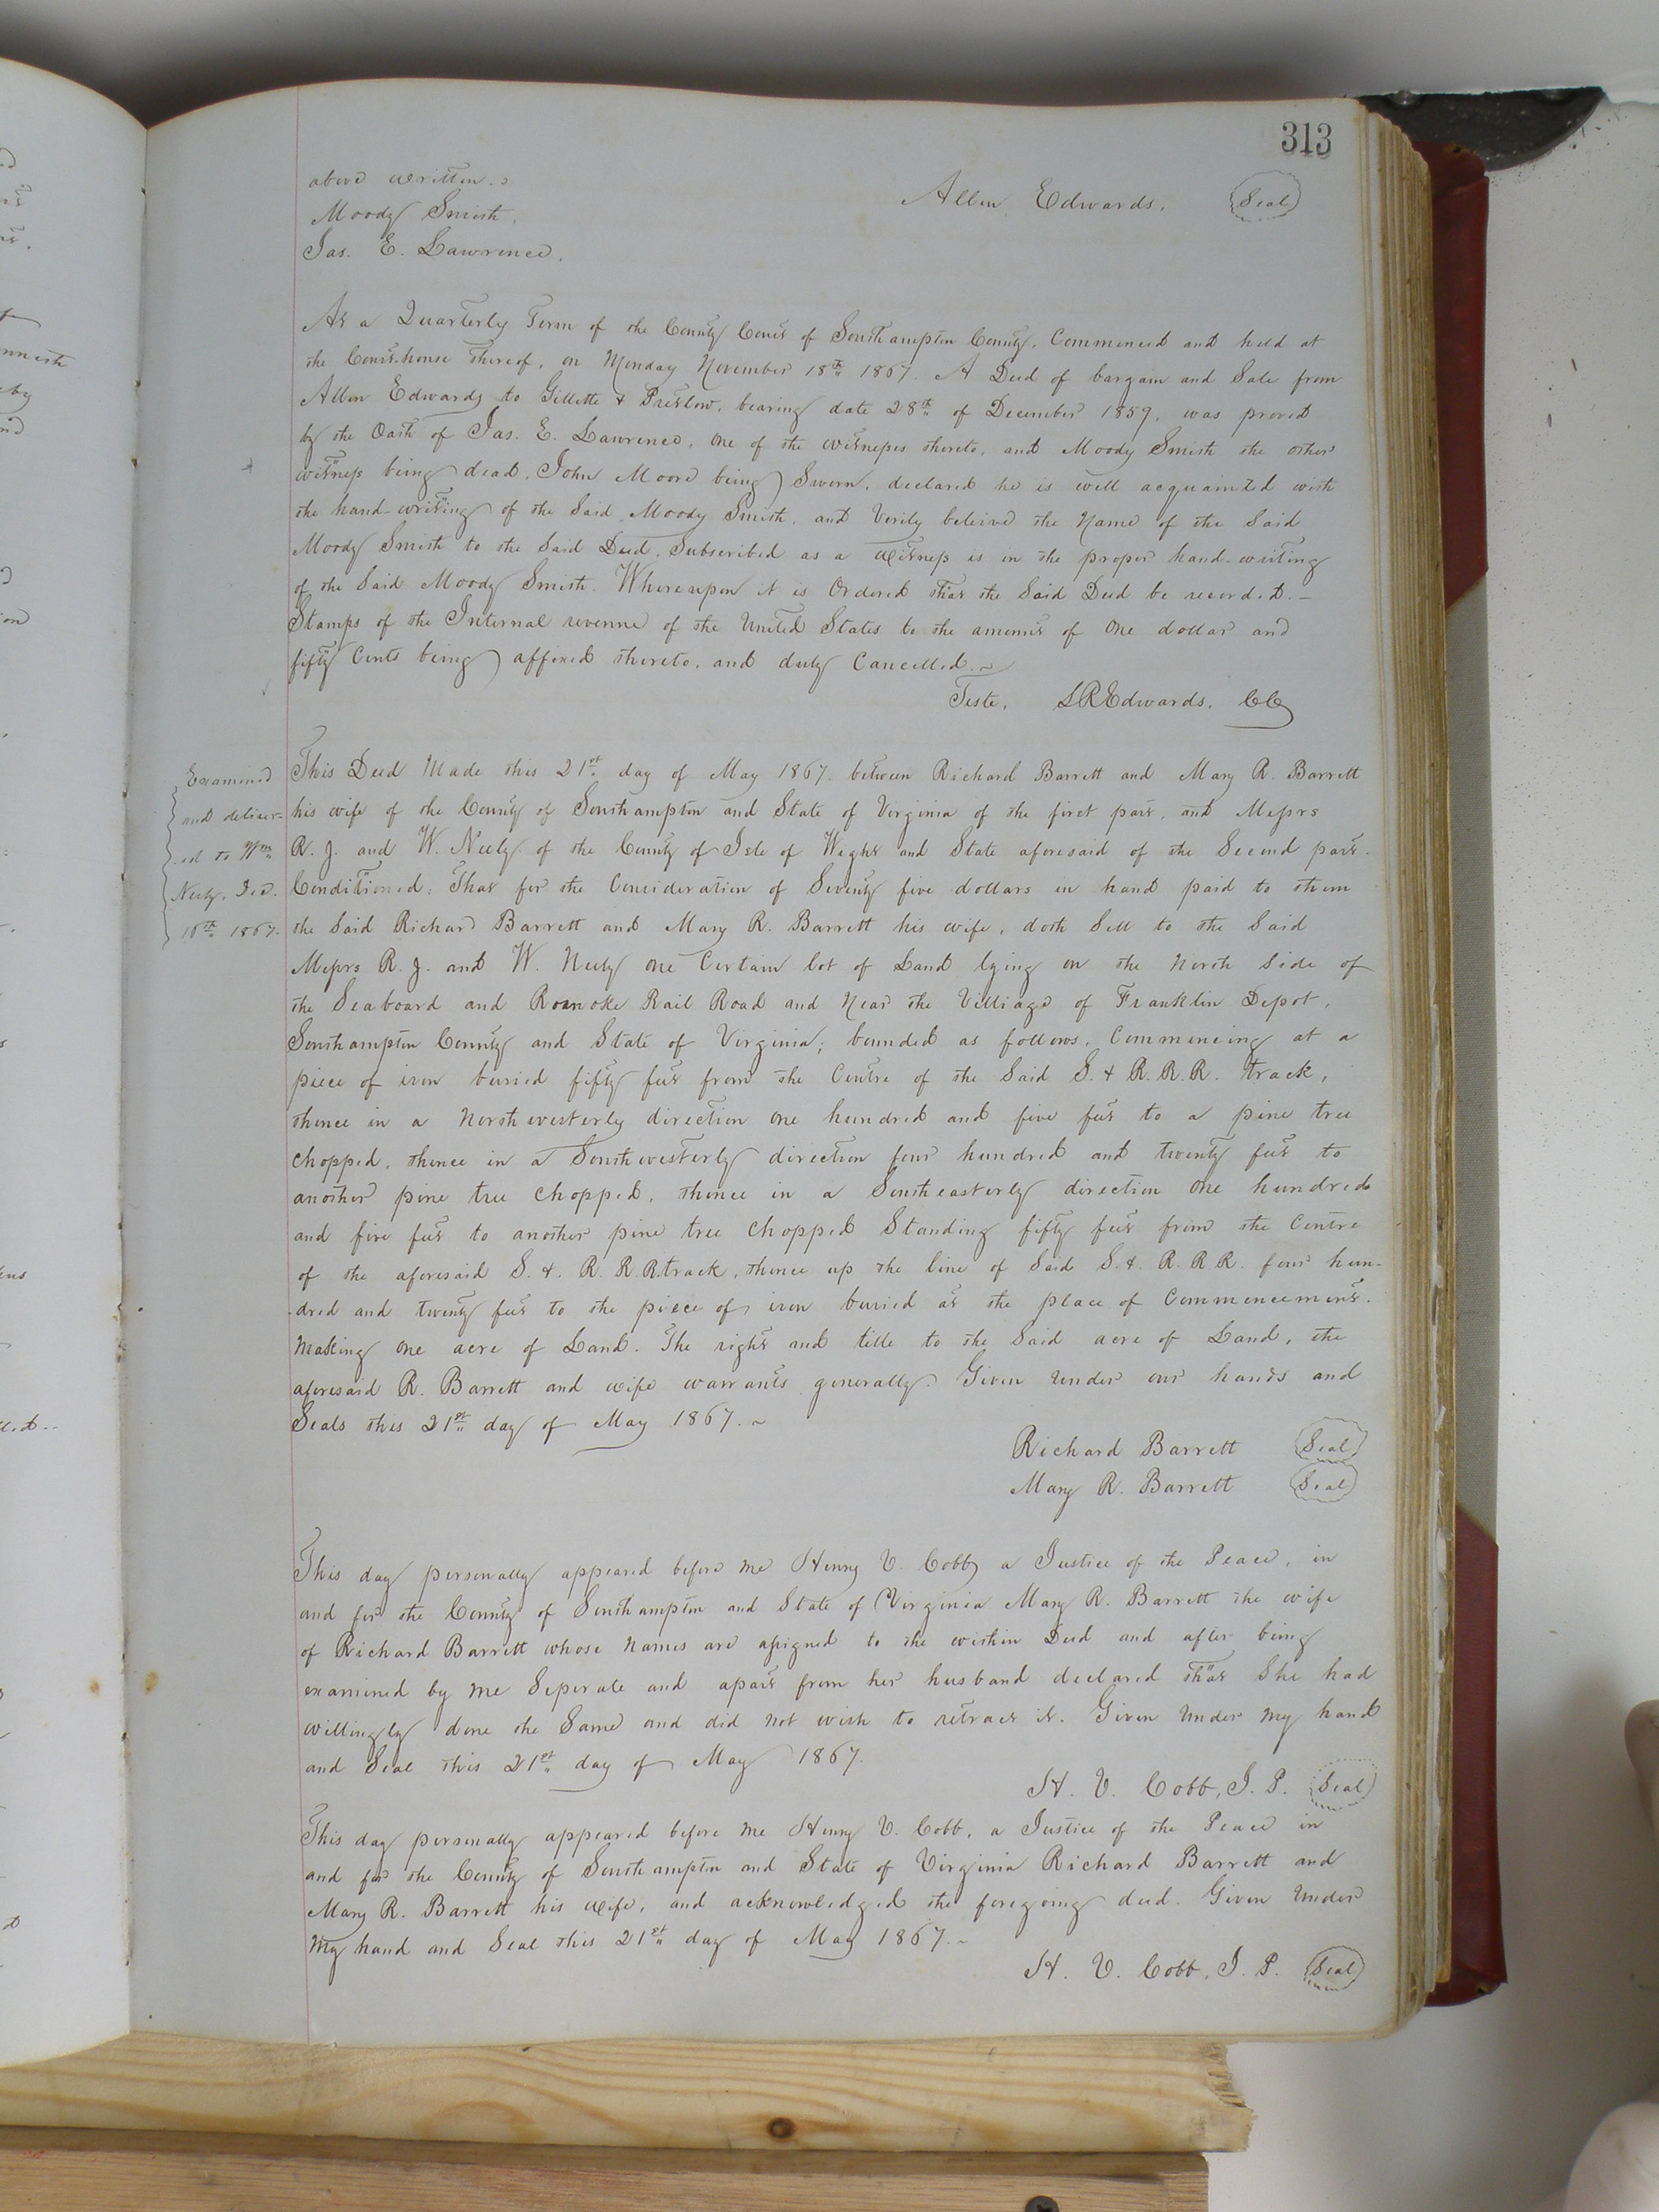 313
above written.
Allen Edwards. (Seal)
Moody Smith.
Jas. E. Lawrence.
At a Quarterly Term of the County Court of Southampton County, Commenced and held at
the Court-house thereof, on Monday November 18th 1867. A Deed of bargain and Sale from
Allen Edwards to Gillette & Pretlow, bearing date 28th of December 1859, was proved
by the Oath of Jas. E. Lawrence, one of the witnesses thereto, and Moody Smith the other
witness being dead, John Moore being Sworn, declared he is well acquainted with
the hand-writing of the Said Moody Smith, and Verily beleive the Name of the Said
Moody Smith to the Said Deed, Subscribed as a witness is in the proper hand-writing
of the Said Moody Smith. Whereupon it is Ordered that the Said Deed be recorded. –
Stamps of the Internal revenue of the United States to the amount of One dollar and
fifty Cents being affixed thereto, and duly Cancelled. ~
Teste, LREdwards, CC
This Deed Made this 21st day of May 1867. between Richard Barrett and Mary R. Barrett
his wife of the County of Southampton and State of Virginia of the first part, and Messrs
R. J. and W. Neely of the County of Isle of Wight and State aforesaid of the Second part.
Conditioned: That for the Consideration of Seventy five dollars in hand paid to them
the Said Richard Barrett and Mary R. Barrett his wife, doth Sell to the Said
Messrs R. J. and W. Neely one Certain lot of Land lying on the North Side of
the Seaboard and Roanoke Rail Road and Near the Villiage of Franklin Depot,
Southampton County and State of Virginia; bounded as follows, Commencing at a
piece of iron buried fifty feet from the Centre of the Said S. & R. R. R. track,
thence in a Northwesterly direction One hundred and five feet to a pine tree
Chopped, thence in a Southwesterly direction four hundred and twenty feet to
another pine tree Chopped, thence in a Southeasterly direction One hundred
and five feet to another pine tree Chopped Standing fifty feet from the Centre
of the aforesaid S. &. R. R. R. track, thence up the line of Said S. &. R. R. R. four hun-
-dred and twenty feet to the piece of iron buried at the place of Commencement.
Making One acre of Land. The right and title to the Said acre of Land, the
aforesaid R. Barrett and wife warrants generally. Given Under our hands and
Seals this 21st day of May 1867. ~
Richard Barrett (Seal)
Mary R. Barrett (Seal)
Examined
and deliver-
ed to Wm
Neely, Dec.
16th 1867.
This day personally appeared before me Henry V. Cobb, a Justice of the Peace, in
and for the County of Southampton and State of Virginia Mary R. Barrett the wife
of Richard Barrett whose names are assigned to the within Deed and after being
examined by me Seperate and apart from her husband declared that She had
willingly done the Same and did not wish to retract it. Given Under My hand
and Seal this 21st day of May 1867.
H. V. Cobb, J. P. (Seal)
This day personally appeared before me Henry V. Cobb, a Justice of the Peace in
and for the County of Southampton and State of Virginia Richard Barrett and
Mary R. Barrett his wife, and acknowledged the foregoing deed. Given Under
My hand and Seal this 21st day of May 1867. ~
H. V. Cobb, J. P. (Seal)